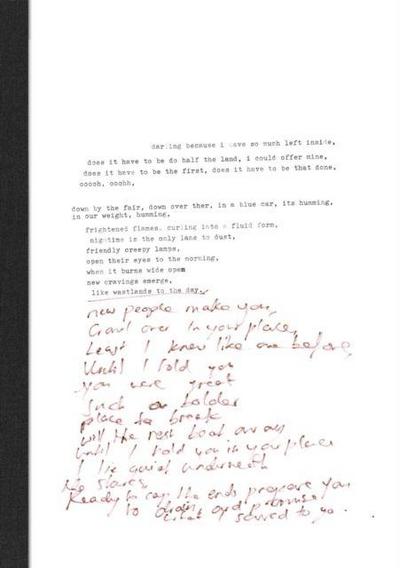 darling because i have so much left inside,
does it have to be do half the land, i could offer mine,
does it have to be the first, does it have to be that done,
ooooh, ooohh,
down by the fair, down over ther, in a blue car, its humming,
in our weight, humming,
frightened flames. curling into a fluid form,
nigttime is the only lane to dust,
friendly creepy lamps,
open their eyes to the morning,
when it burns wide open
new cravings emerge,
like wastlands to the day
new people make you,
Crawl over in your place,
Least I knew like one before,
Until I told you
you were great
Such a bolder
place to break
will the rest
until I told you in your place
I lie quiet underneath
the stars,
Ready to rap the ends prepare you
to and promise
what I seved to you.